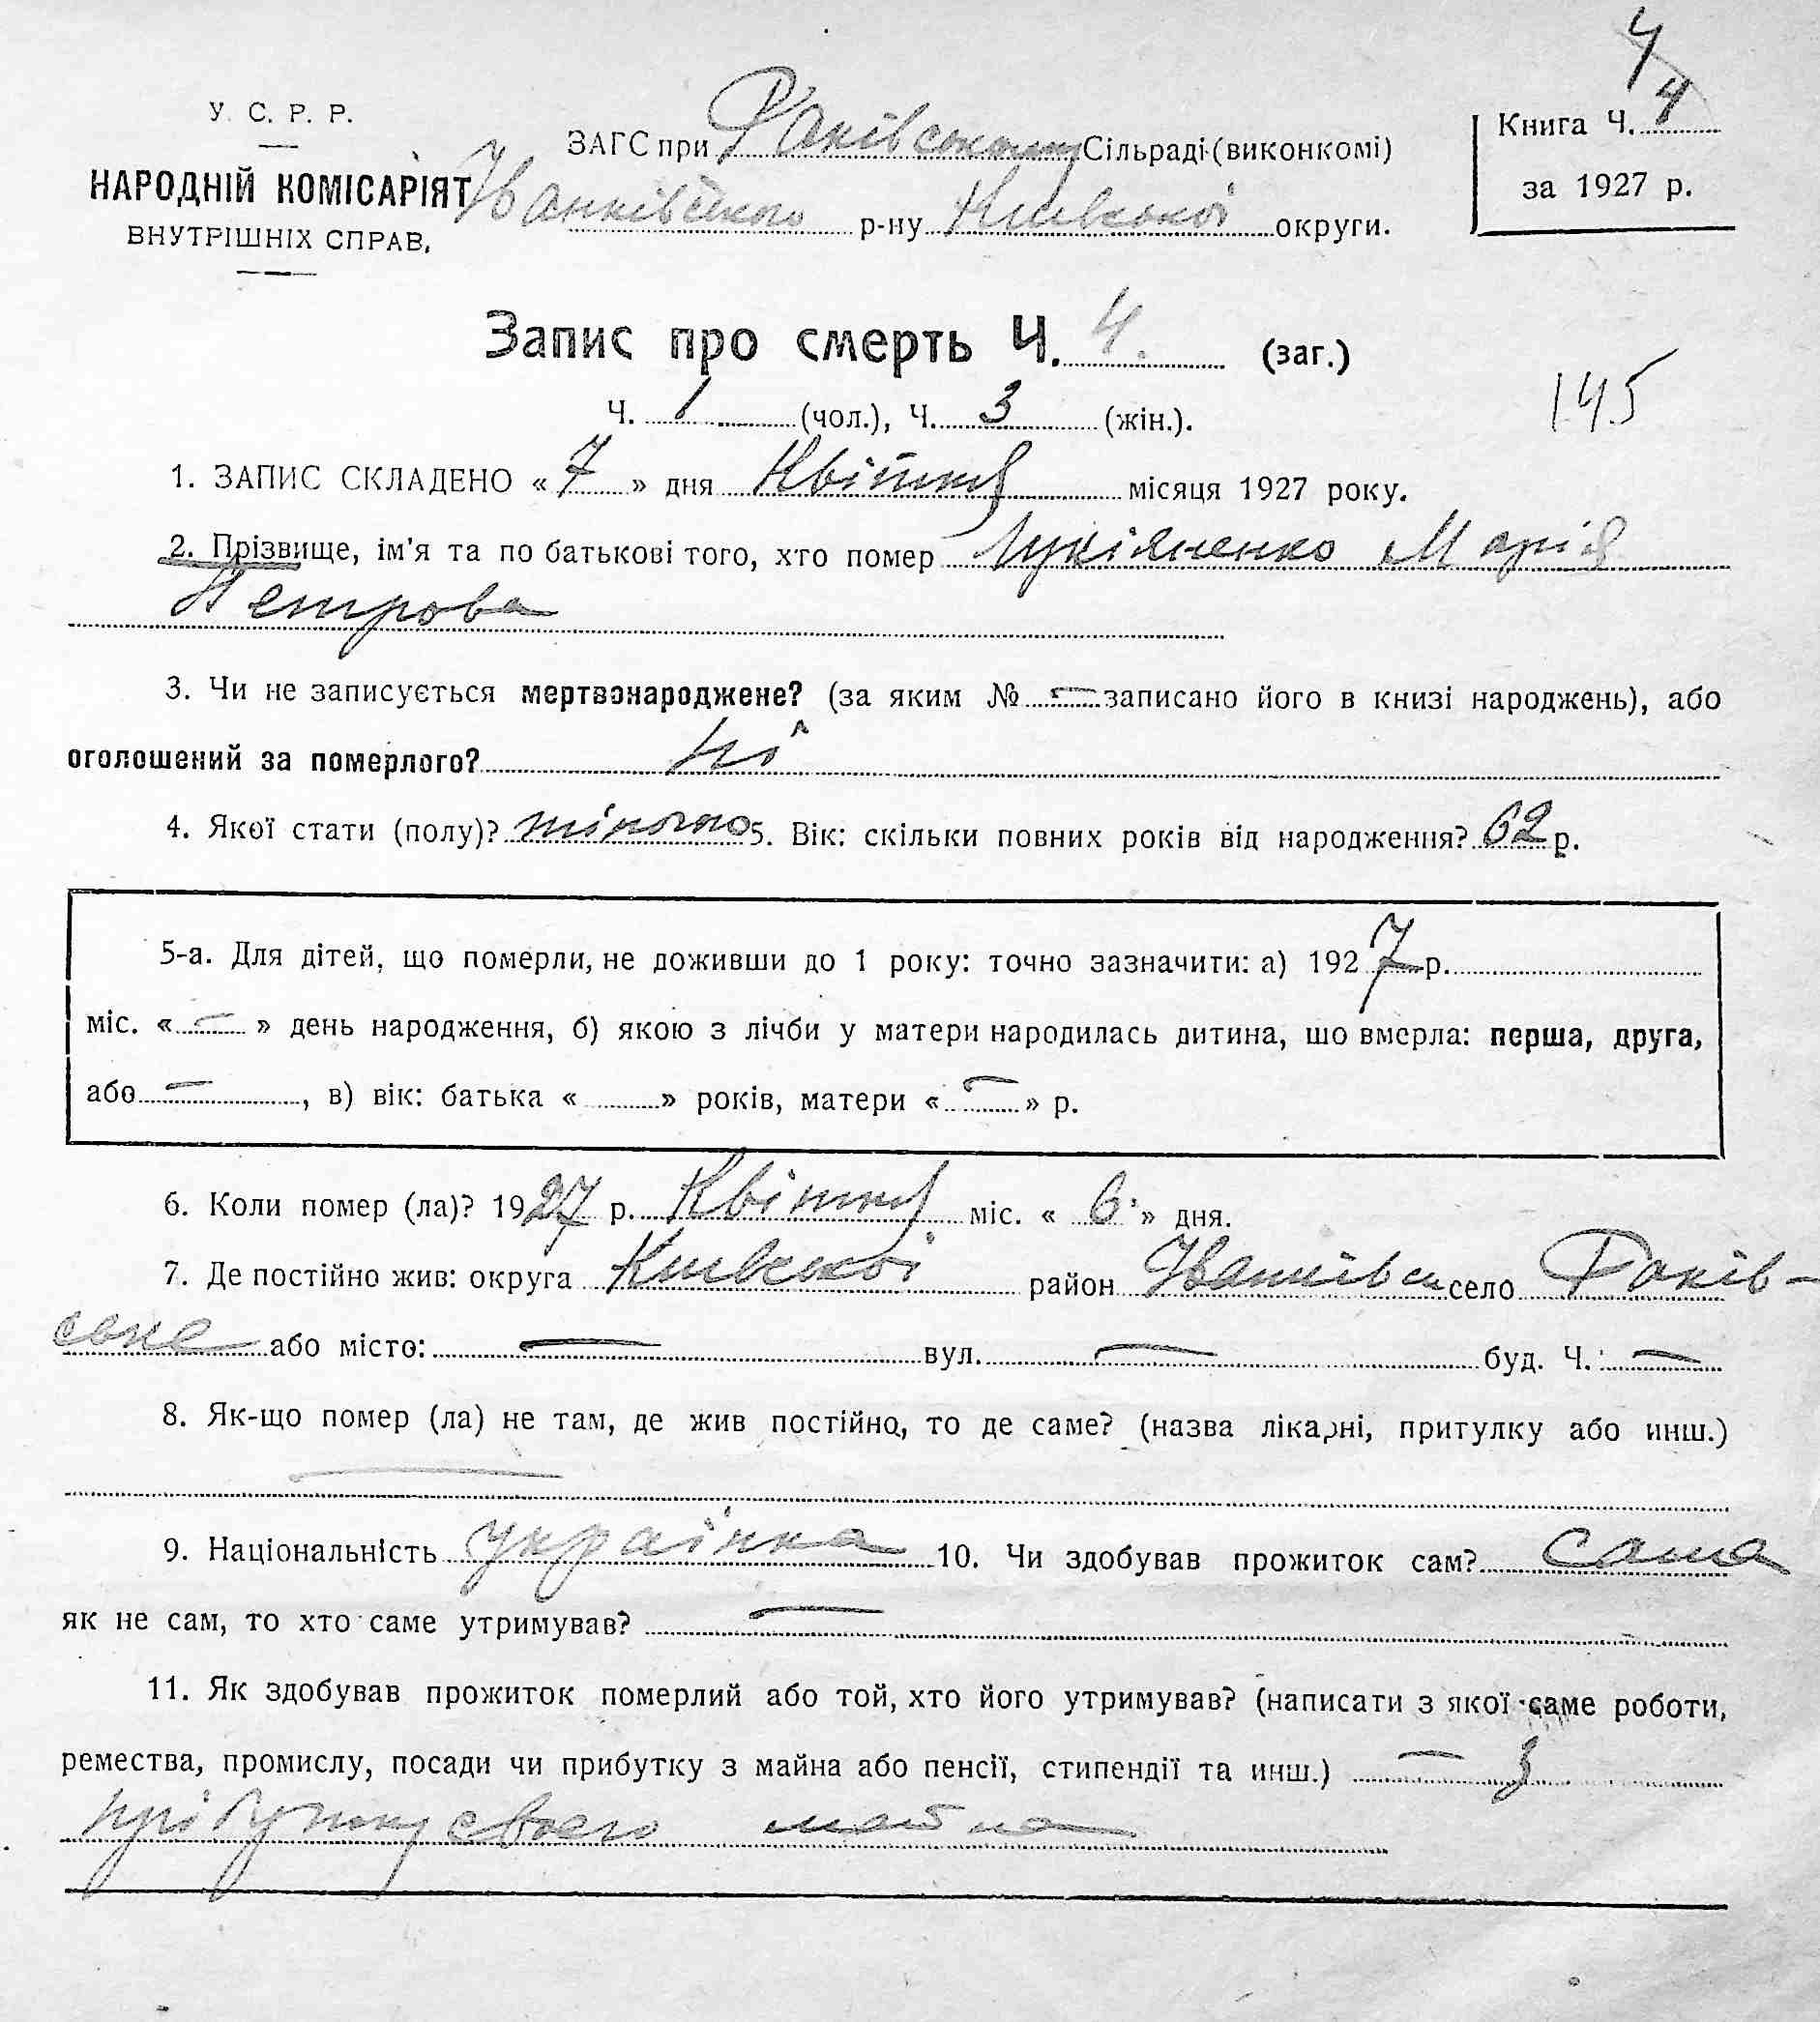 4
У. С. Р. Р.
НАРОДНІЙ КОМІСАРІЯТ
ВНУТРІШНІХ СПРАВ,
ЗАГС при Раківському Сільраді (виконкомі)
Іванківського р-ну Київської округи.
Книга Ч. 4
за 1927 р.
Запис про смерть Ч. 4. (заг.)
Ч. 1 (чол.), Ч. 3 (жін.).
145
1. ЗАПИС СКЛАДЕНО « 7 » дня Квітня місяця 1927 року.
2. Прізвище, ім'я та по батькові того, хто помер Лукіяненко Марія
Петрова
3. Чи не записується мертвонароджене? (за яким № — записано його в книзі народжень), або
оголошений за померлого? ні
4. Якої стати (полу)? жіночого 5. Вік: скільки повних років від народження? 62 р.
5-а. Для дітей, що померли, не доживши до 1 року: точно зазначити: а) 1927 р.
міс. « — » день народження, б) якою з лічби у матери народилась дитина, що вмерла: перша, друга,
або —, в) вік: батька « » років, матери « — » р.
6. Коли помер (ла)? 1927 р. Квітня міс. « 6 » дня.
7. Де постійно жив: округа Київської район Іванківськ село Раків-
ське або місто: — вул. — буд. Ч. —
8. Як-що помер (ла) не там, де жив постійно, то де саме? (назва лікарні, притулку або инш.)
—
9. Національність українка 10. Чи здобував прожиток сам? сама
як не сам, то хто саме утримував? —
11. Як здобував прожиток померлий або той, хто його утримував? (написати з якої саме роботи,
ремества, промислу, посади чи прибутку з майна або пенсії, стипендії та инш.) — З
прібутку своего майна